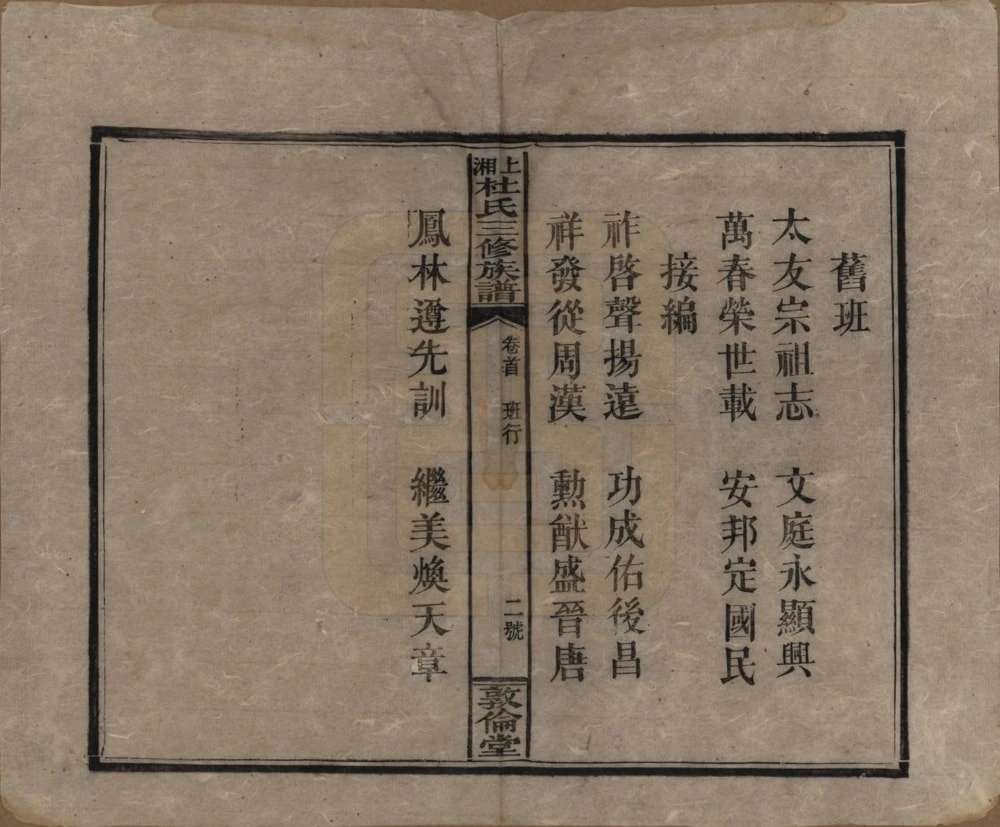 舊班
太友宗祖志　文庭永顯興
萬春榮世載　安邦定國民
接編
祚啓聲揚遠　功成佑後昌
祥發從周漢　勲猷盛晉唐
上湘杜氏三修族譜
卷首　班行
二號
敦倫堂
鳳林遵先訓　繼美煥天章